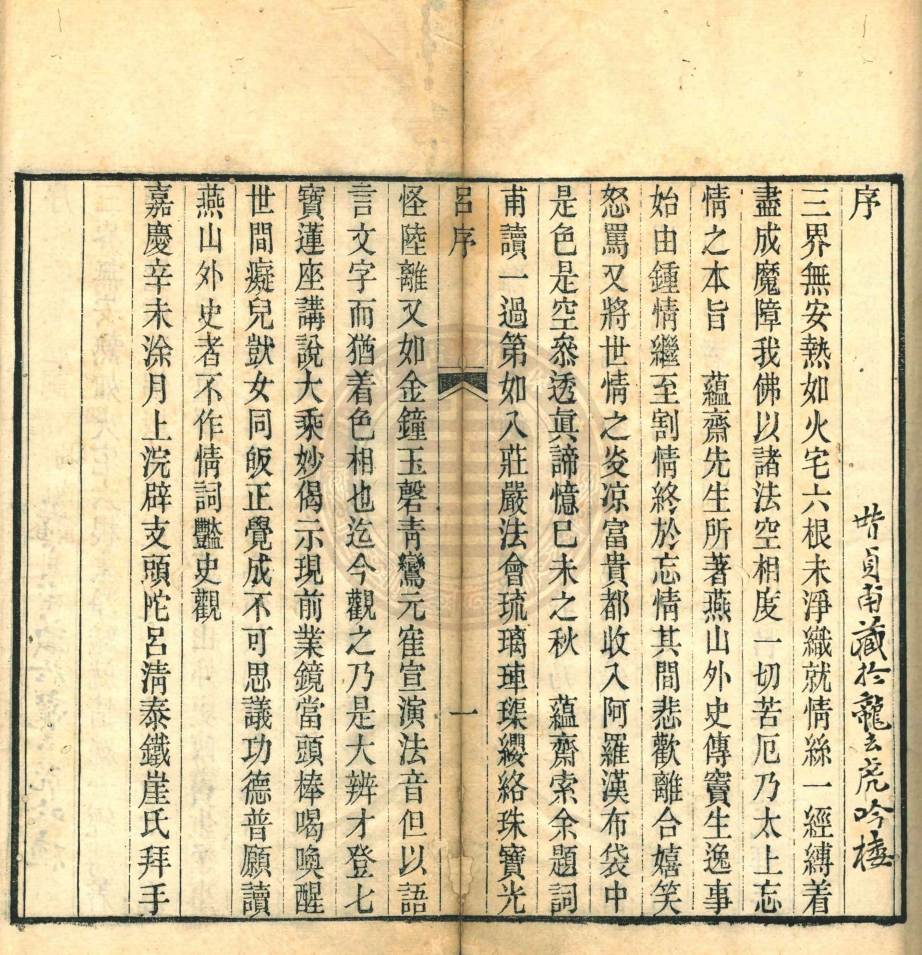 序
世貞甫藏於龍雲虎吟樓
三界無安熱如火宅六根未淨織就情絲一經縛着
盡成魔障我佛以諸法空相度一切苦厄乃太上忘
情之本旨　蘊齋先生所著燕山外史傳竇生逸事
始由鍾情繼至割情終於忘情其間悲歡離合嬉笑
怒罵又將世情之炎凉富貴都收入阿羅漢布袋中
是色是空叅透眞諦憶巳未之秋　蘊齋索余題詞
甫讀一過第如入莊嚴法會琉璃硨磲纓絡珠寶光
呂序
一
怪陸離又如金鐘玉磬靑鸞元寉宣演法音但以語
言文字而猶着色相也迄今觀之乃是大辨才登七
寶蓮座講說大乘妙偈示現前業鏡當頭棒喝喚醒
世間癡兒獃女同皈正覺成不可思議功德普願讀
燕山外史者不作情詞豔史觀
嘉慶辛未涂月上浣辟支頭陀呂淸泰鐵崖氏拜手